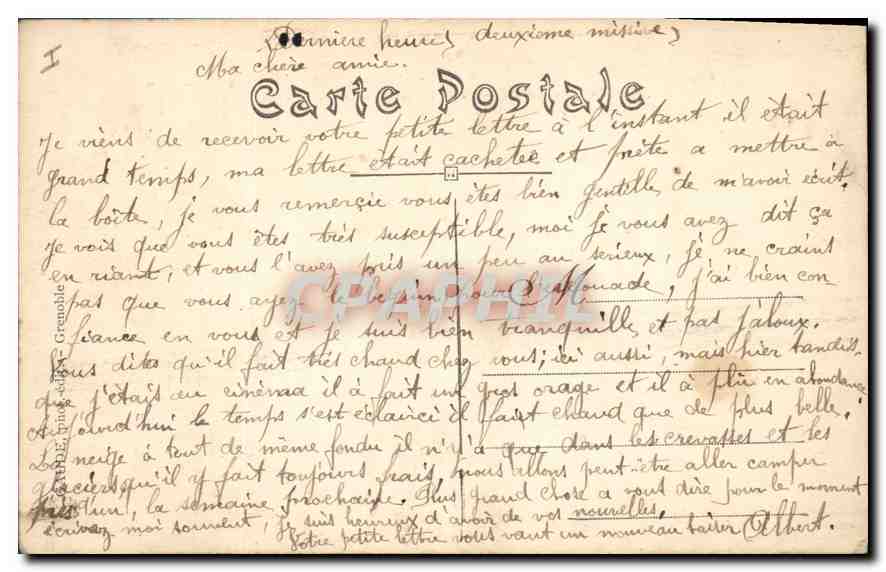 I
(Derniere heure, deuxieme missive)
Ma chère amie.
Carte Postale
Je viens de recevoir votre petite lettre à l'instant il était
grand temps, ma lettre était cachetée et prète a mettre à
la boîte, je vous remerçie vous êtes bien gentille de m'avoir écrit.
Je vois que vous êtes très susceptible, moi je vous avez dit ça
en riant, et vous l'avez pris un peu au serieux, je ne crains
pas que vous ayez le béguin pour l'escouade, j'ai bien con
M
CPAPHIL
fiance en vous et je suis bien tranquille et pas jaloux.
Vous dites qu'il fait très chaud chez vous; ici aussi, mais hier tandis-
que j'étais au cinéma il à fait un gros orage et il à plu en abondance
Aujourd'hui le temps s'est éclairci il fait chaud que de plus belle.
La neige à tout de même fondu il n'y a que dans les crevasses et les
glaciers qu'il y fait toujours frais, nous allons peut-être aller camper
près d'un, la semaine prochaine. Plus grand chose a vous dire pour le moment
écrivez moi souvent, je suis heureux d'avoir de vos nouvelles.
Votre petite lettre vous vaut un nouveau baiser Albert.
Grenoble